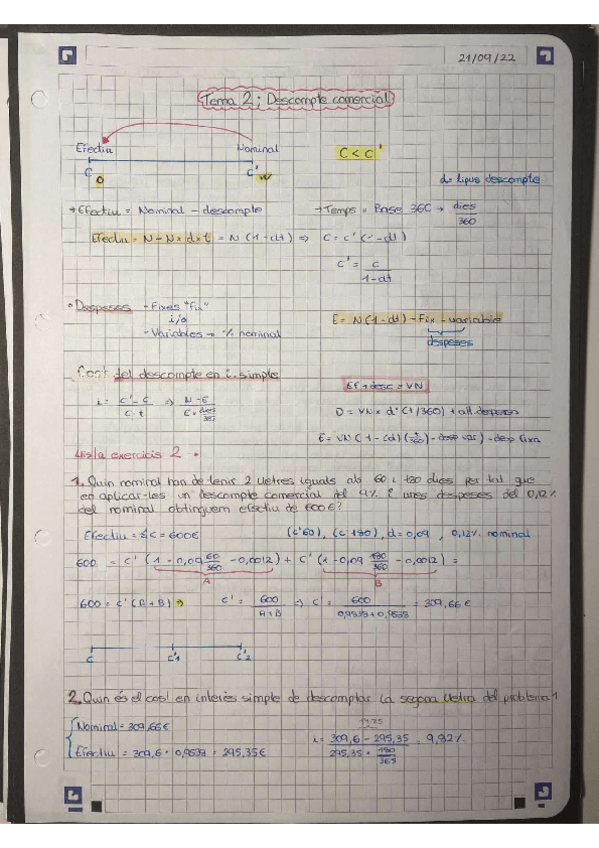 21/09/22
Tema 2: Descompte comercial
Efectiu Nominal
C < C'
C 0 C' N
d = tipus descompte
→ Efectiu = Nominal - descompte
→ Temps = Base 360 → dies/360
Efectiu = N - N × d × t = N (1 - dt) ⇒ C = C' (1 - dt)
C' = C / 1 - dt
• Despeses - Fixes "Fix"
i/o
- Variables → % nominal
E = N (1 - dt) - Fix - variable
despeses
Cost del descompte en i. simple
i = C' - C / C · t ⇒ N - E / E × dies/365
Ef + desc = VN
D = VN × d · (t/360) + alt. despesen
Llista exercicis 2 •
1. Quin nominal han de tenir 2 lletres iguals ab 60 i 180 dies per tal que
en aplicar-les un descompte comercial del 9% i unes despeses del 0,12%
del nominal obtinguem efectiu de 600€?
Efectiu = ΣC = 600€
(C' 60), (C' 180), d = 0,09 , 0,12% nominal
600 = C' (1 - 0,09 60/360 - 0,0012) + C' (1 - 0,09 180/360 - 0,0012) =
A B
600 = C' (A + B) ⇒ C' = 600 / A + B ⇒ C' = 600 / 0,9838 + 0,9538 = 309,66 €
C C'1 C'2
2. Quin és el cost en interès simple de descomptar la segona lletra del problema 1
Nominal = 309,66€
Efectiu = 309,6 · 0,9538 = 295,35€
i = 309,6 - 295,35 / 295,35 · 180/365 = 9,82%